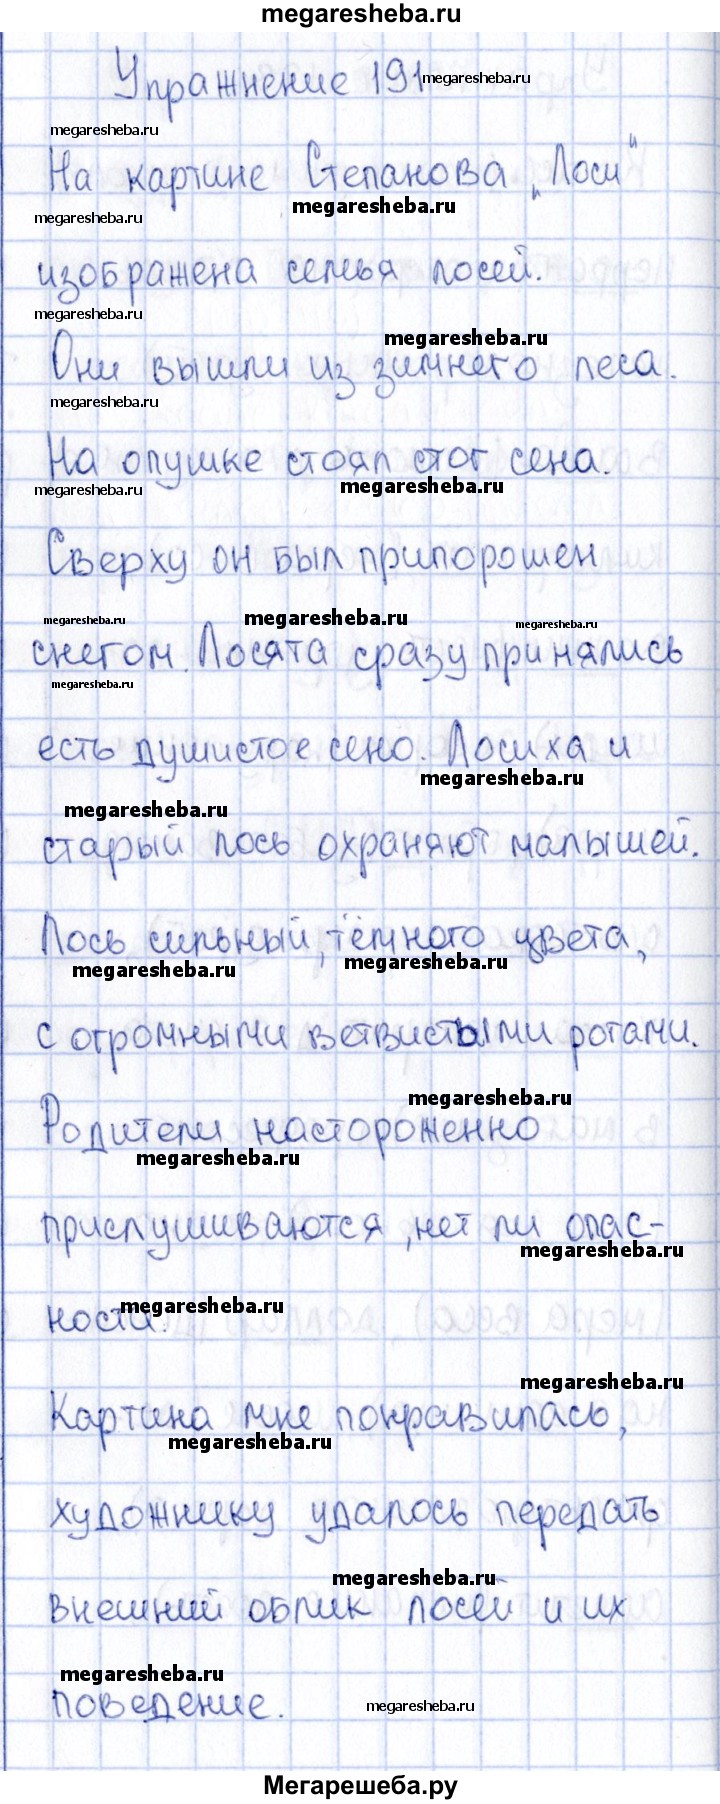 megaresheba.ru
Упражнение 191
megaresheba.ru
megaresheba.ru
На картине Степанова „Лоси"
megaresheba.ru
megaresheba.ru
изображена семья лосей.
megaresheba.ru
megaresheba.ru
Они вышли из зимнего леса.
megaresheba.ru
На опушке стоял стог сена.
megaresheba.ru
megaresheba.ru
Сверху он был припорошен
megaresheba.ru
megaresheba.ru
megaresheba.ru
снегом. Лосята сразу принялись
megaresheba.ru
есть душистое сено. Лосиха и
megaresheba.ru
megaresheba.ru
старый лось охраняют малышей.
Лось сильный, тёмного цвета,
megaresheba.ru
megaresheba.ru
с огромными ветвистыми рогами.
megaresheba.ru
Родители настороженно
megaresheba.ru
прислушиваются, нет ли опас-
megaresheba.ru
ности.
megaresheba.ru
megaresheba.ru
Картина мне понравилась,
megaresheba.ru
художнику удалось передать
megaresheba.ru
внешний облик лосей и их
megaresheba.ru
поведение.
megaresheba.ru
Мегарешеба.ру